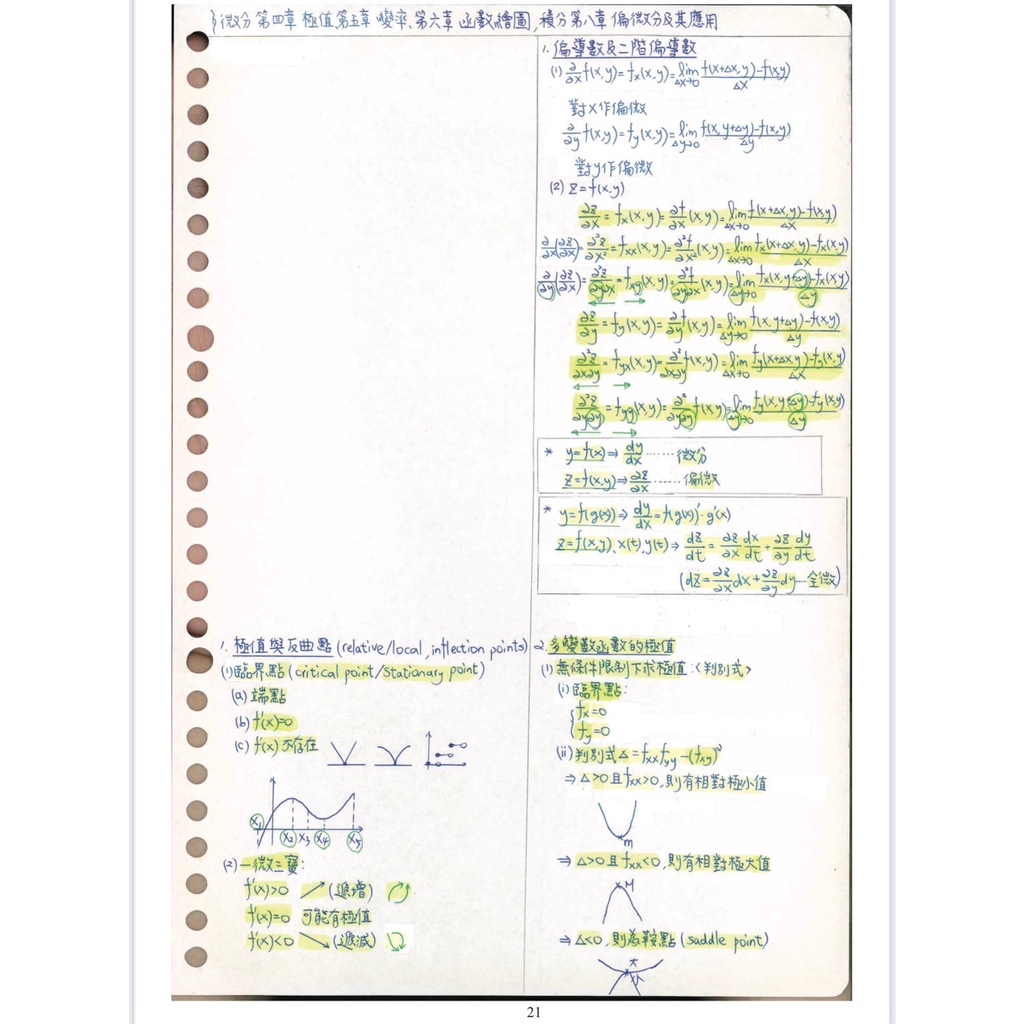 §微分第四章 極值 第五章 變率、第六章 函數繪圖, 積分第八章 偏微分及其應用
1. 偏導數及二階偏導數
(1) ∂/∂x f(x,y) = fx(x,y) = lim Δx→0 (f(x+Δx,y)-f(x,y))/Δx
對x作偏微
∂/∂y f(x,y) = fy(x,y) = lim Δy→0 (f(x,y+Δy)-f(x,y))/Δy
對y作偏微
(2) z=f(x,y)
∂z/∂x = fx(x,y) = ∂f/∂x (x,y) = lim Δx→0 (f(x+Δx,y)-f(x,y))/Δx
∂/∂x(∂z/∂x) = ∂²z/∂x² = fxx(x,y) = ∂²f/∂x² (x,y) = lim Δx→0 (fx(x+Δx,y)-fx(x,y))/Δx
∂/∂y(∂z/∂x) = ∂²z/∂y∂x = fxy(x,y) = ∂²f/∂y∂x (x,y) = lim Δy→0 (fx(x,y+Δy)-fx(x,y))/Δy
∂z/∂y = fy(x,y) = ∂/∂y f(x,y) = lim Δy→0 (f(x,y+Δy)-f(x,y))/Δy
∂²z/∂x∂y = fyx(x,y) = ∂²/∂x∂y f(x,y) = lim Δx→0 (fy(x+Δx,y)-fy(x,y))/Δx
∂²z/∂y∂y = fyy(x,y) = ∂²/∂y∂y f(x,y) = lim Δy→0 (fy(x,y+Δy)-fy(x,y))/Δy
* y=f(x) ⇒ dy/dx ........ 微分
z=f(x,y) ⇒ ∂z/∂x ...... 偏微
* y=f(g(x)) ⇒ dy/dx = f(g(x))'·g'(x)
z=f(x,y), x(t), y(t) ⇒ dz/dt = ∂z/∂x dx/dt + ∂z/∂y dy/dt
(dz = ∂z/∂x dx + ∂z/∂y dy .... 全微)
1. 極值與反曲點 (relative/local, inflection points)
(1) 臨界點 (critical point/Stationary point)
(a) 端點
(b) f'(x)=0
(c) f'(x) 不存在
x1 x2 x3 x4 x5
(2) 一微三寶:
f'(x)>0 ↗ (遞增)
f'(x)=0 可能有極值
f'(x)<0 ↘ (遞減)
2. 多變數函數的極值
(1) 無條件限制下求極值:<判別式>
(i) 臨界點:
{fx=0
{fy=0
(ii) 判別式 Δ = fxx fyy - (fxy)²
⇒ Δ>0 且 fxx>0, 則有相對極小值
m
⇒ Δ>0 且 fxx<0, 則有相對極大值
M
⇒ Δ<0, 則為鞍點 (saddle point)
大
小
21